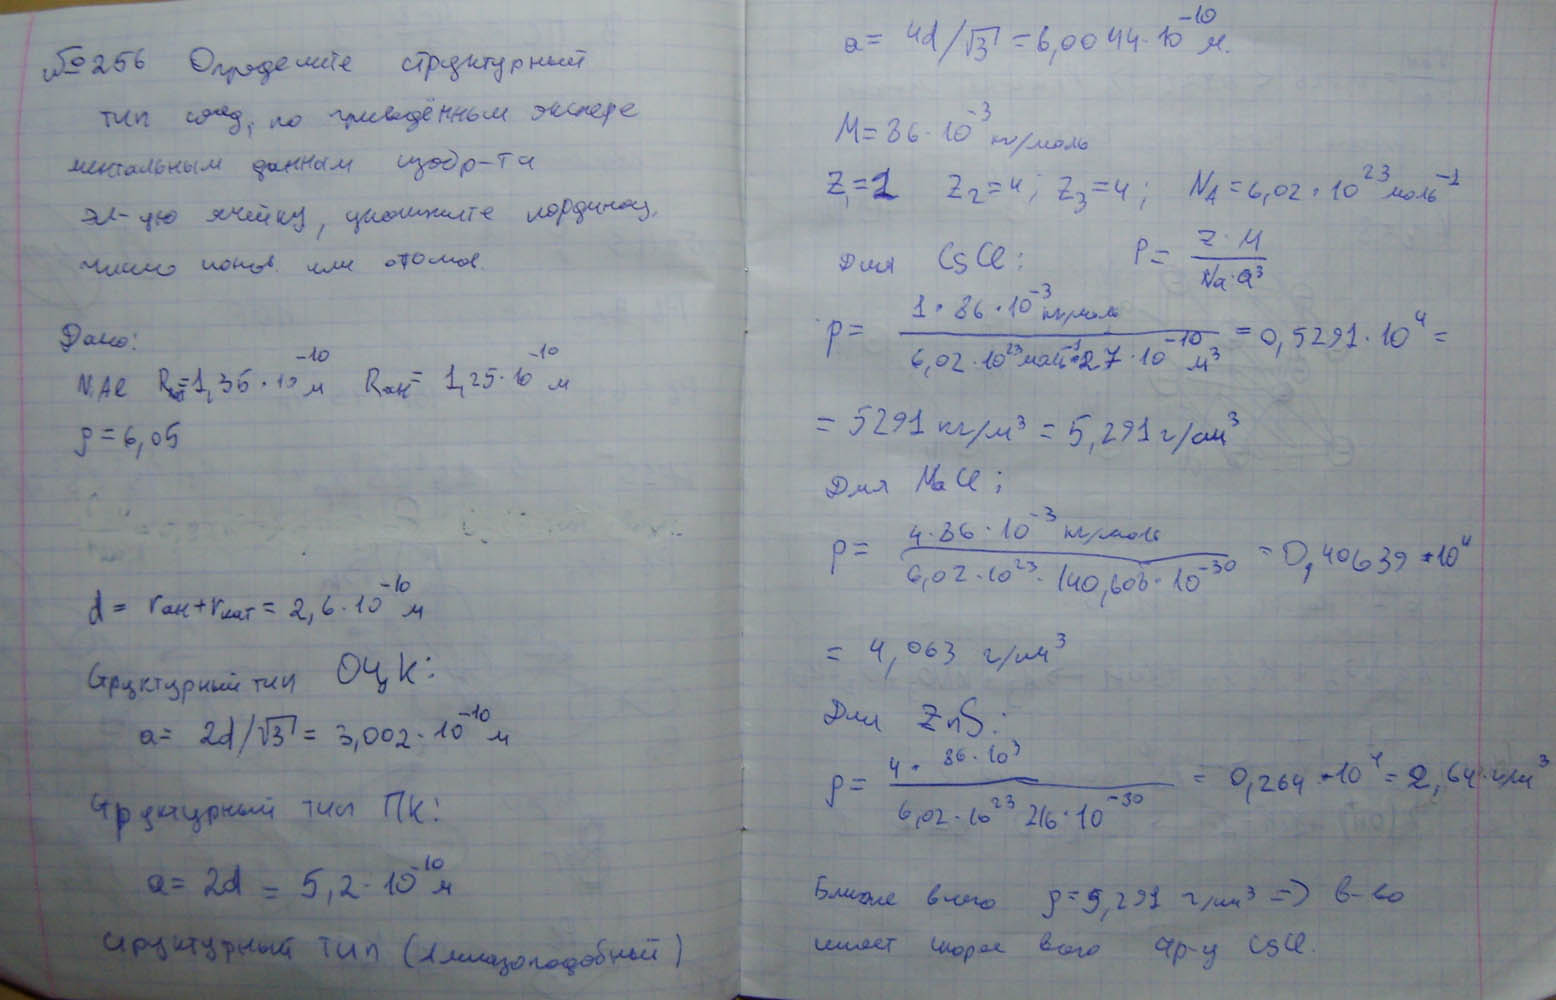 №256 Определите структурный
тип соед, по приведённым экспере
ментальным данным изобр-те
эл-ую ячейку, укажите координац.
число ионов или атомов.
Дано:
NiAl Rкат=1,35·10⁻¹⁰ м Rан= 1,25·10⁻¹⁰ м
ρ=6,05
d = rан+rкат = 2,6·10⁻¹⁰ м
Структурный тип ОЦК:
a= 2d/√3 = 3,002·10⁻¹⁰ м
Структурный тип ПК:
a= 2d = 5,2·10⁻¹⁰ м
структурный тип (алмазоподобный)
a= 4d/√3 = 6,0044·10⁻¹⁰ м.
M=86·10⁻³ кг/моль
Z₁=1 Z₂=4; Z₃=4; NA=6,02·10²³ моль⁻¹
Для CsCl: ρ= Z·M / Na·a³
ρ= 1·86·10⁻³ кг/моль / 6,02·10²³ моль⁻¹·27·10⁻¹⁰ м³ = 0,5291·10⁴ =
= 5291 кг/м³ = 5,291 г/см³
Для NaCl:
ρ= 4·86·10⁻³ кг/моль / 6,02·10²³·140,608·10⁻³⁰ = 0,40639·10⁴
= 4,063 г/см³
Для ZnS:
ρ= 4·86·10³ / 6,02·10²³ 216·10⁻³⁰ = 0,264·10⁴ = 2,64 г/см³
Ближе всего ρ=5,291 г/см³ => в-во
имеет скорее всего стр-у CsCl.